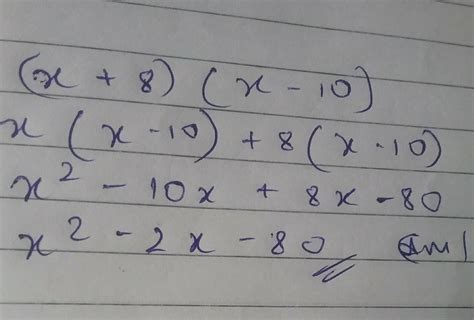 (x + 8) (x - 10)
x (x - 10) + 8 (x - 10)
x² - 10x + 8x - 80
x² - 2x - 80